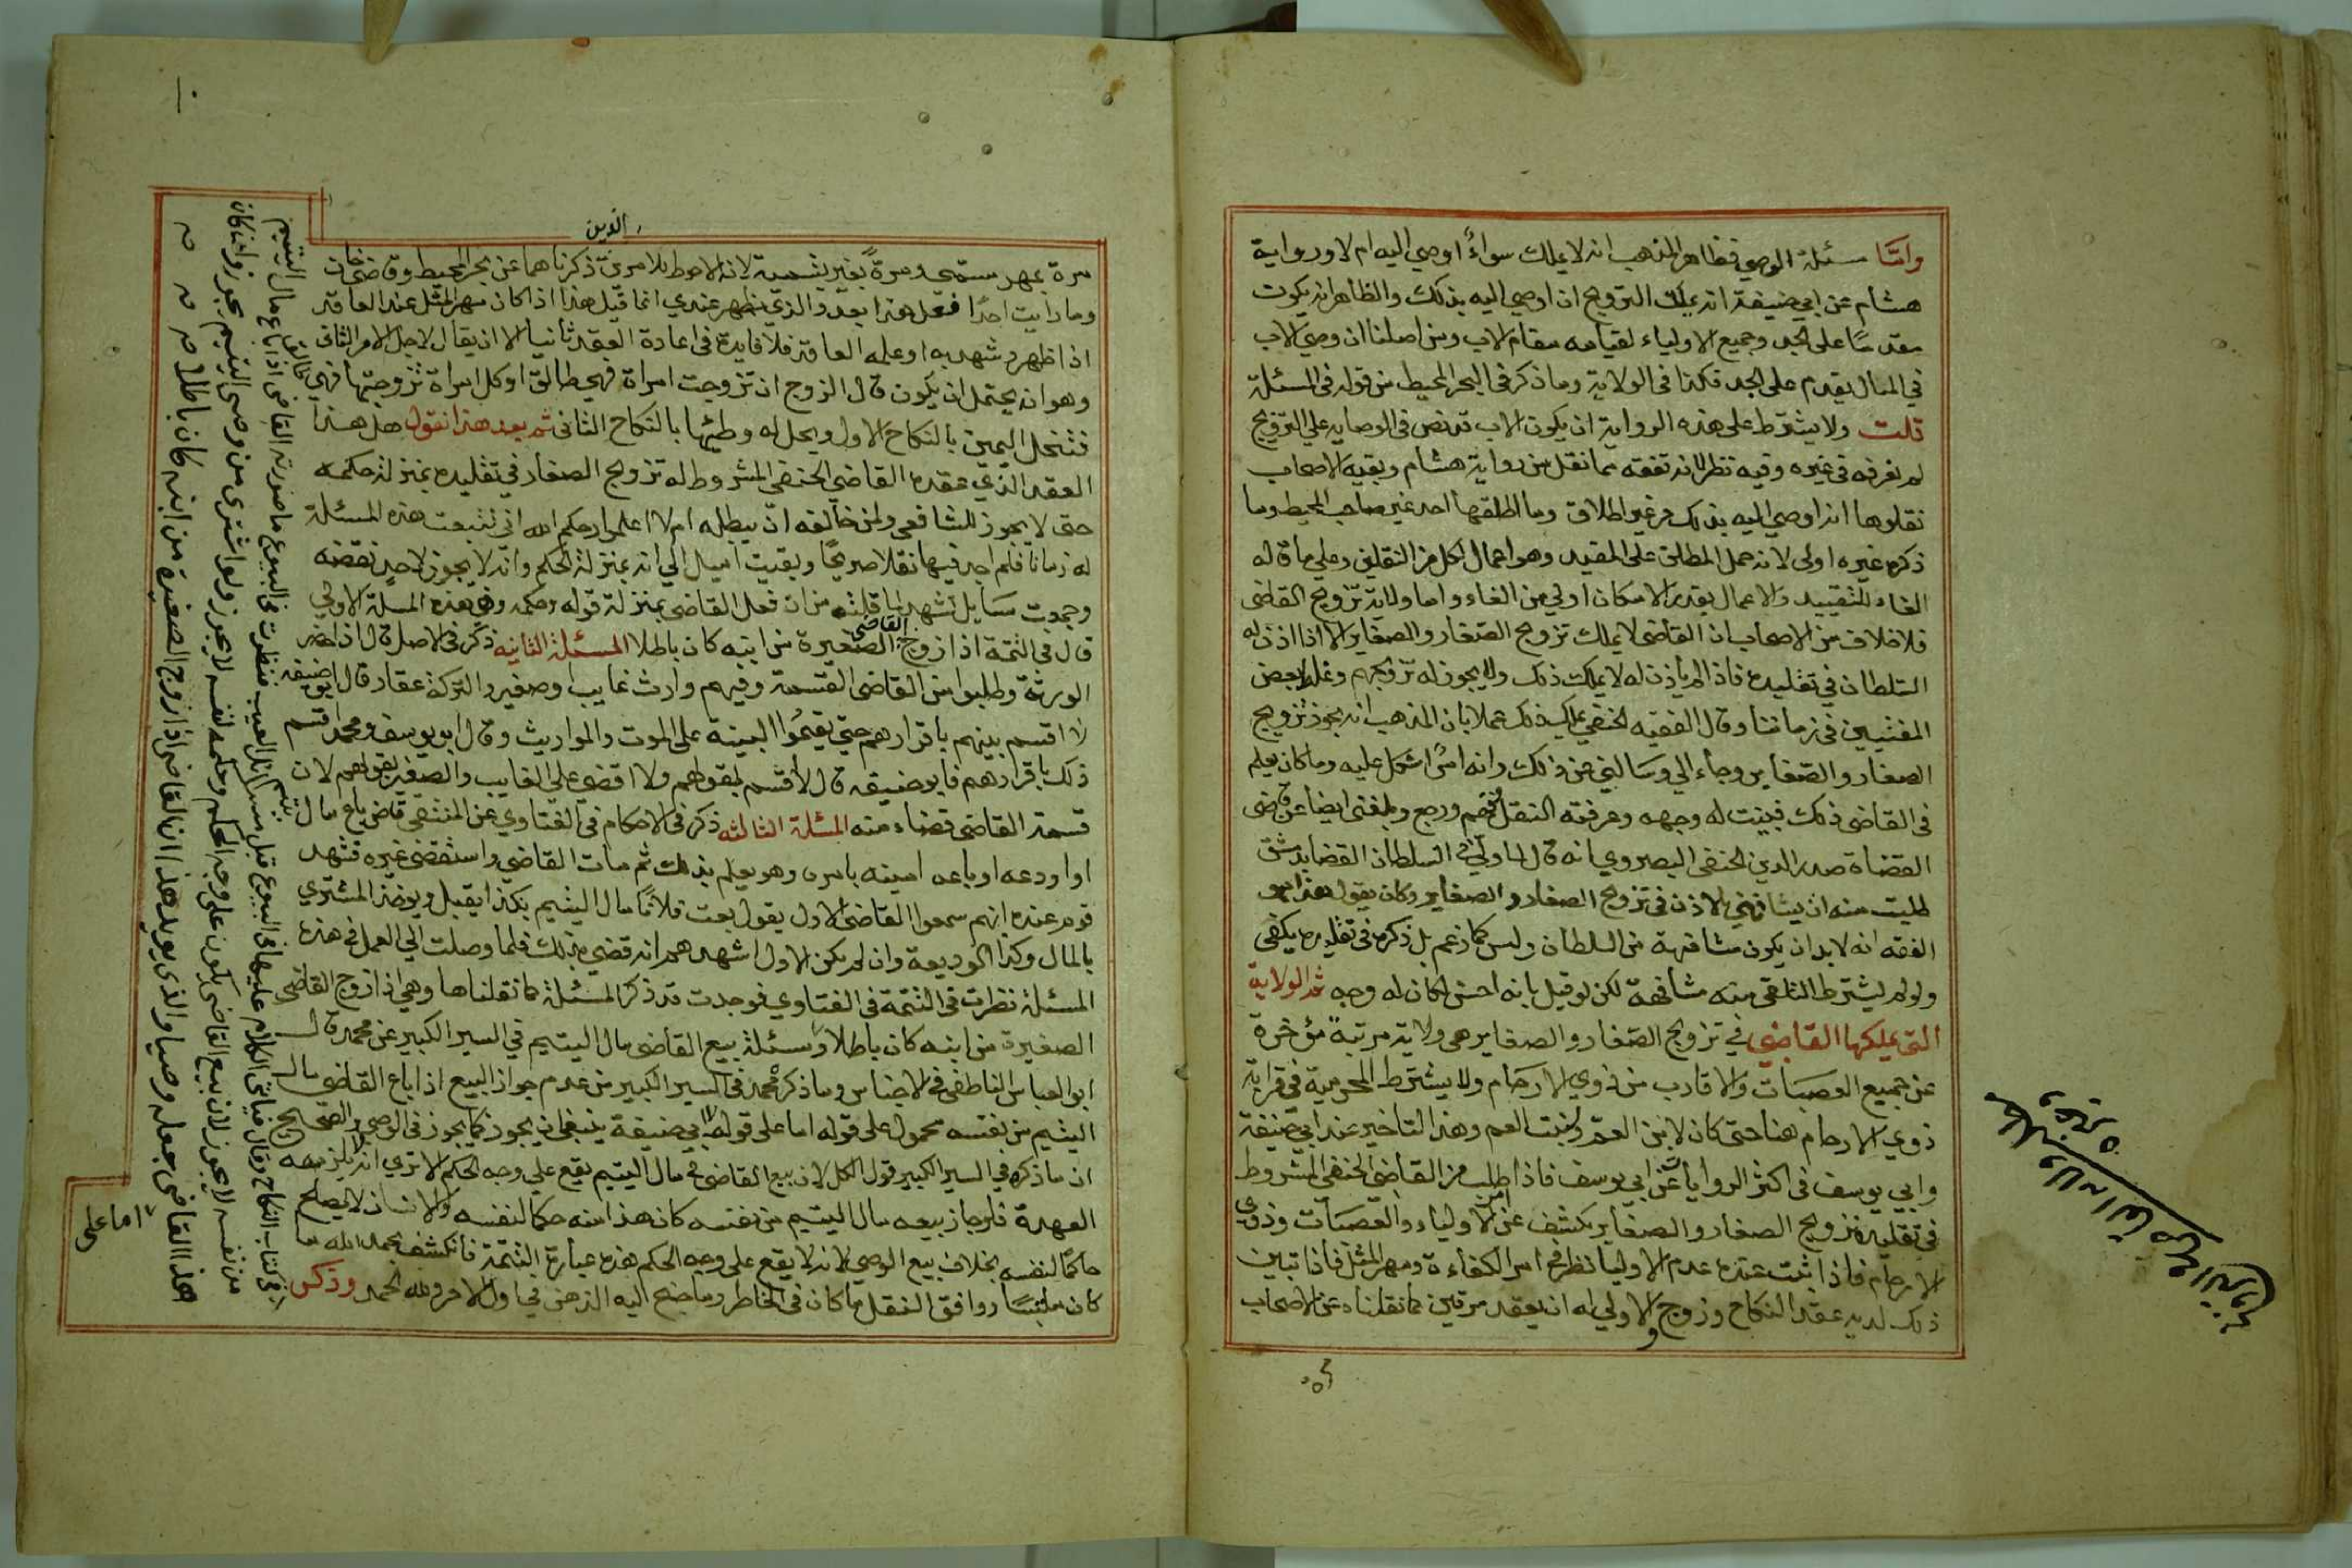 وامّا مسئلة الوصي فظاهر المذهب انه لا يملك سواءً اوصي اليه ام لا ورواية
هشام عن ابي حنيفة انه يملك التزويج ان اوصي اليه بذلك والظاهر انه يكون
مقدمًا على الجد وجميع الاولياء لقيامه مقام الاب ومن اصلنا ان وصي الاب
في المال يقدم على الجد فكذا في الولاية وما ذكر في البحر المحيط من قوله في المسئلة
قلت ولا يشترط على هذه الرواية ان يكون الاب قد نص في الوصايه علي التزويج
لم نعرفه في غيره وفيه نظر لانه تفقه مما نقل من رواية هشام وبقية الاصحاب
نقلوها اذا اوصي اليه بذلك من غير اطلاق وما اطلقها احد غير صاحب المحيط وما
ذكره غيره اولى لانه حمل المطلق على المقيد وهو اعمال لكل من النقلين وعلي ما قاله
الغاء للتقييد والاعمال بقدر الامكان اولي من الغاء واما ولاية تزويج القاضي
فلا خلاف من الاصحاب ان القاضي لا يملك تزويج الصغار والصغاير الا اذا اذن له
السلطان في تقليده فاذا لم ياذن له لا يملك ذلك ولا يجوز له تزويجهم وغلط بعض
المفتيين في زماننا وقال الفقيه الحنفي يملك ذلك عملا بان المذهب انه يجوز تزويج
الصغار والصغاير وجاء الي وسالني عن ذلك وانه امرًا شكل عليه وما كان يعلم
في القاضي ذلك فبينت له وجهه وعرفته النقل ففهم ورجع وبلغني ايضا عن قاضي
القضاة صدر الدين الحنفي البصروي انه قال لما ولاني السلطان القضا بدمشق
طلبت منه ان يشافهني بالاذن في تزويج الصغار والصغاير وكان يقول هذا هو
الفقه انه لابد ان يكون مشافهة من السلطان وليس كما زعم بل ذكره في تقليده يكفي
ولو لم يشترط التلقي منه مشافهة لكن لو قيل بانه احسن لكان له وجه ثم الولاية
التي يملكها القاضي في تزويج الصغار والصغاير هي ولاية مرتبةً مؤخرة
عن جميع العصبات والاقارب من ذوي الارحام ولا يشترط المحرمية في قرابة
ذوي الارحام هنا حتى كان لابن العم ولبنت العم وهذا التاخير عند ابي حنيفة
وابي يوسف في اكثر الروايات عن ابي يوسف فاذا طلب من القاضي الحنفي المشروط
في تقليده تزويج الصغار والصغاير يكشف عن امر الاولياء والعصبات وذوي
الارحام فاذا ثبت عنده عدم الاوليا نظر في امر الكفاءة ومهر المثل فاذا تبين
ذلك لديه عقد النكاح وزوج والاولي له ان يعقد مرتين كما نقلناه عن الاصحاب
الذين
مرة بمهر مسمى ومرةً بغير تسمية لانه الاحوط للامرين ذكرناهما عن البحر المحيط وقاضي خان
وما رايت احدًا فعل هذا بعد والذي يظهر عندي انما قيل هذا اذا كان مهر المثل عند العاقد
اذا ظهر وشهد به او علمه العاقد فلا فايدة في اعادة العقد ثانيا الا ان يقال لاجل الامر الثاني
وهو انه يحتمل ان يكون قال الزوج ان تزوجت امراة فهي طالق او كل امراة تزوجتها فهي طالق
فتنحل اليمين بالنكاح الاول ويحل له وطئها بالنكاح الثاني ثم بعد هذا نقول هل هذا
العقد الذي عقده القاضي الحنفي المشروط له تزويج الصغار في تقليده بمنزلة حكمه
حتى لا يجوز للشافعي ولمن خالفه ان يبطله ام لا اعلموا رحمكم الله اني تتبعت هذه المسئلة
له زمانا فلم اجد فيها نقلا صريحًا وبقيت اميل الي انه بمنزلة الحكم وانه لا يجوز لاحد نقضه
وجمعت مسايل تشهد لما قلته من ان فعل القاضي بمنزلة قوله وحكمه وهي هذه المسئلة الاولي
قال في التتمة اذا زوج القاضي الصغيرة من ابنه كان باطلا المسئلة الثانية ذكر في الاصل قال اذا حضر
الورثة وطلبوا من القاضي القسمة وفيهم وارث غايب او صغير والتركة عقار قال ابو حنيفه
لا اقسم بينهم باقرارهم حتي يقيمُوا البينة على الموت والمواريث وقال ابو يوسف ومحمد اقسم
ذلك باقرارهم فابو حنيفه قال لا اقسم بقولهم ولا اقضي على الغايب والصغير بقولهم لان
قسمة القاضي قضاء منه المسئلة الثالثه ذكر في الاحكام في الفتاوي عن المنتقى قاض باع مال يتيم
او اودعه او باعه امينه بامره وهو يعلم بذلك ثم مات القاضي واستقضى غيره فشهد
قوم عنده انهم سمعوا القاضي الاول يقول بعت فلانًا مال اليتيم بكذا يقبل ويوخذ المشتري
بالمال وكذا الوديعة وان لم يكن الاول اشهدهم انه قضي بذلك فلما وصلت الي العمل في هذه
المسئلة نظرت في التتمة في الفتاوي فوجدت قد ذكر المسئلة كما نقلناها وهي اذا زوج القاضي
الصغيرة من ابنه كان باطلا ومسئلة بيع القاضي مال اليتيم في السير الكبير عن محمد قال
ابو العباس الناطفي في الاجناس وما ذكره محمد في السير الكبير من عدم جواز البيع اذا باع القاضي مال
اليتيم من نفسه محمول على قوله اما على قول ابي حنيفة ينبغي ان يجوز كما يجوز في الوصي والصحيح
ان ما ذكره في السير الكبير قول الكل لان بيع القاضي في مال اليتيم يقع علي وجه الحكم الا تري انه لا يلزمه
العهدة فلو جاز بيعه مال اليتيم من نفسه كان هذا منه حكما لنفسه والانسان لا يصلح
حاكمًا لنفسه بخلاف بيع الوصي لانه لا يقع على وجه الحكم هذه عبارة التتمة فانكشف بحمد الله ما
كان ملتبسًا ووافق النقل ما كان في الخاطر وما جنح اليه الذهن في اول الامر ولله الحمد وذكر
في كتاب النكاح وقال فياتي الكلام عليها في البيوع قبل مسائل العيب فنظرت في البيوع ما صورته القاضي اذا باع مال اليتيم
من نفسه لا يجوز لان بيع القاضي يكون على وجه الحكم وحكمه لنفسه لا يجوز ولو اشترى من وصي اليتيم يجوز وان كان
هذا القاضي جعله وصيا والذي يويد هذا ان القاضي اذا زوج الصغيرة من ابنه كان باطلا
اما على